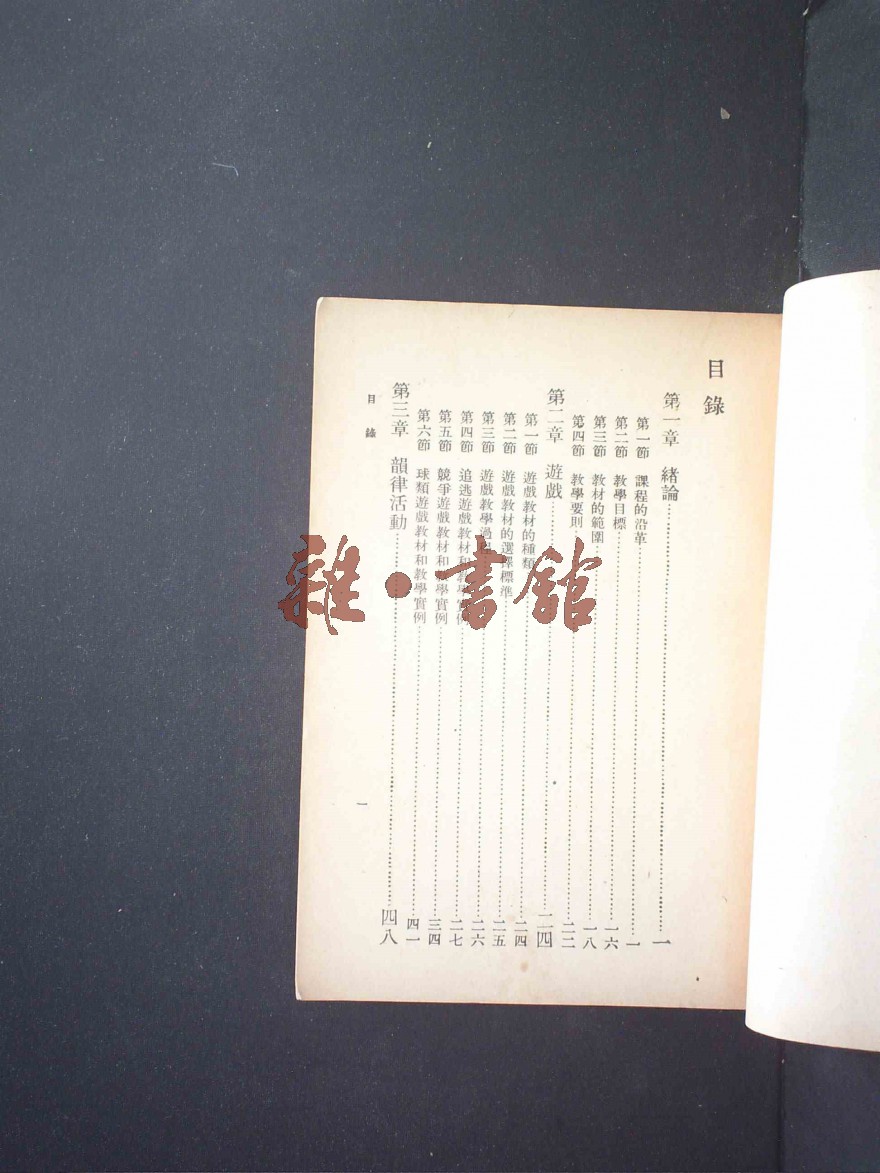 目錄
第一章 緒論……一
第一節 課程的沿革……一
第二節 教學目標……一六
第三節 教材的範圍……一八
第四節 教學要則……二二
第二章 遊戲……二四
第一節 遊戲教材的種類……二四
第二節 遊戲教材的選擇標準……二五
第三節 遊戲教學過……二六
第四節 追逃遊戲教材和教學實例……二七
第五節 競爭遊戲教材和教學實例……三四
第六節 球類遊戲教材和教學實例……四一
第三章 韻律活動……四八
目錄
一
雜·書館